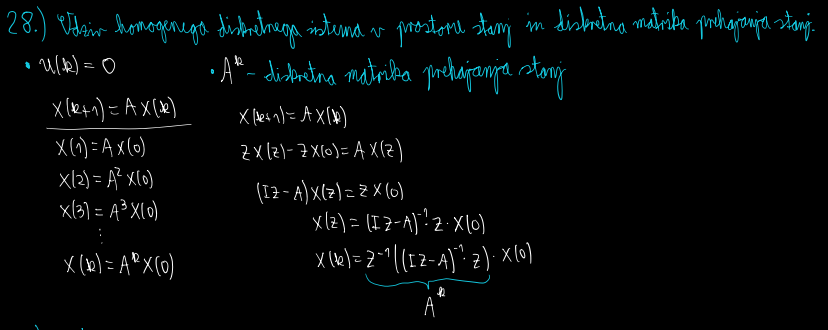 28.) Odziv homogenega diskretnega sistema v prostoru stanj in diskretna matrika prehajanja stanj.
• u(k) = 0
x(k+1) = A x(k)
x(1) = A x(0)
x(2) = A² x(0)
x(3) = A³ x(0)
⋮
x(k) = A^k x(0)
• A^k - diskretna matrika prehajanja stanj
x(k+1) = A x(k)
z X(z) - z x(0) = A X(z)
(Iz - A) X(z) = z x(0)
X(z) = (Iz - A)^-1 · z · x(0)
x(k) = z^-1 ((Iz - A)^-1 · z) · x(0)
A^k